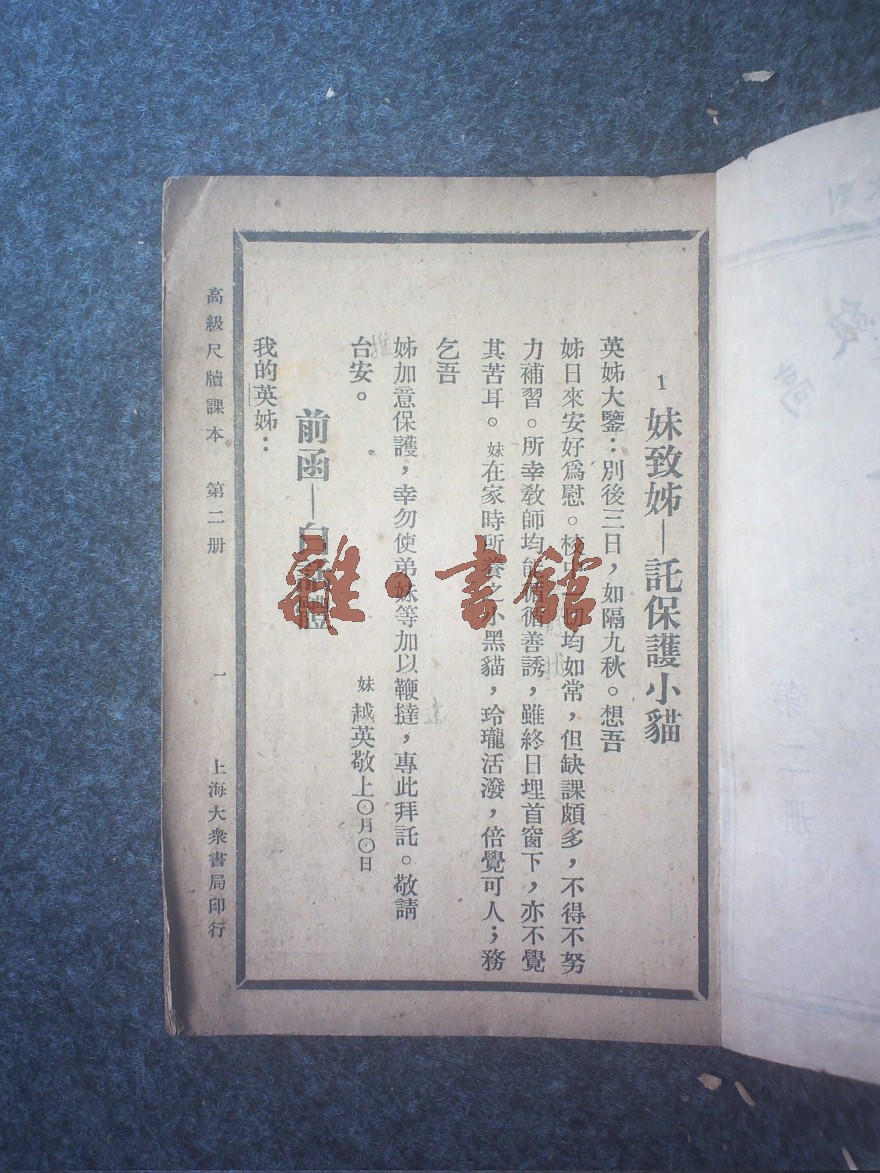 1 妹致姊—託保護小貓
英姊大鑒：別後三日，如隔九秋。想吾
姊日來安好爲慰。校中均如常，但缺課頗多，不得不努
力補習。所幸教師均能循循善誘，雖終日埋首窗下，亦不覺
其苦耳。妹在家時所養之小黑貓，玲瓏活潑，倍覺可人；務
乞吾
姊加意保護，幸勿使弟妹等加以鞭撻，專此拜託。敬請
台安。
妹 越英敬上〇月〇日
前函—白話體
我的英姊：
高級尺牘課本 第二册 一 上海大衆書局印行
雒·書館
第二册